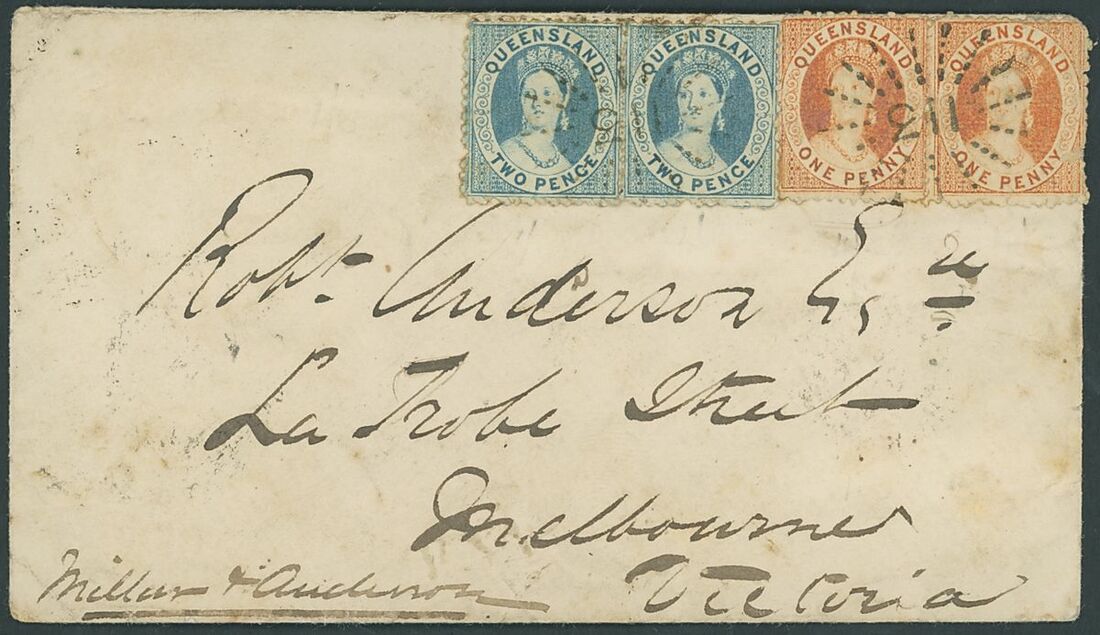 QUEENSLAND QUEENSLAND QUEENSLAND QUEENSLAND
TWO PENCE TWO PENCE ONE PENNY ONE PENNY
Robt. Anderson Esqre
La Trobe Street
Melbourne
Victoria
Millar & Anderson